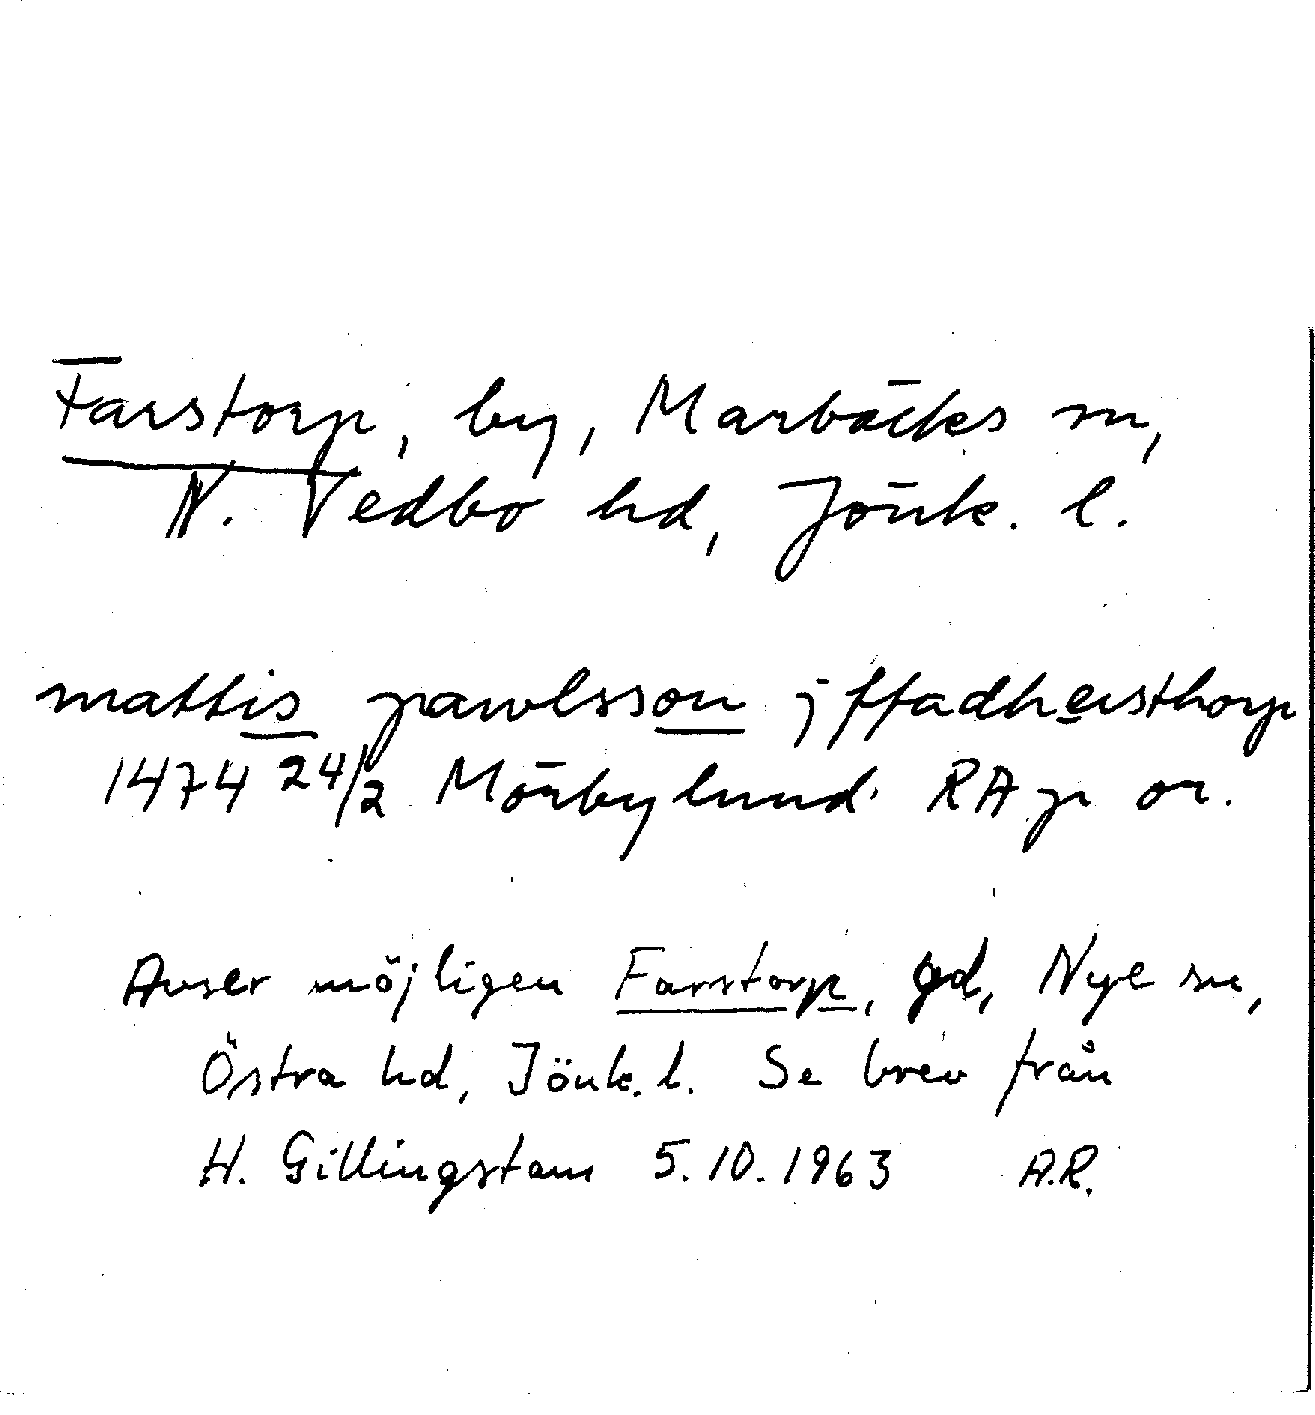 Farstorp, by, Marbäcks sn,
N. Vedbo hd, Jönk. l.
mattis pawlsson j ffadhersthorp
1474 24/2 Mörbylund. RA p or.
Avser möjligen Farstorp, gd, Nye sn,
Östra hd, Jönk. l. Se brev från
H. Gillingstam 5.10.1963 A.R.